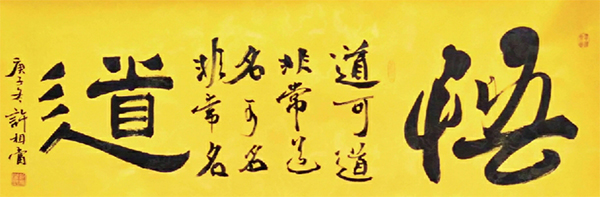 悟
道可道
非常道
名可名
非常名
道
庚子冬 許相賓